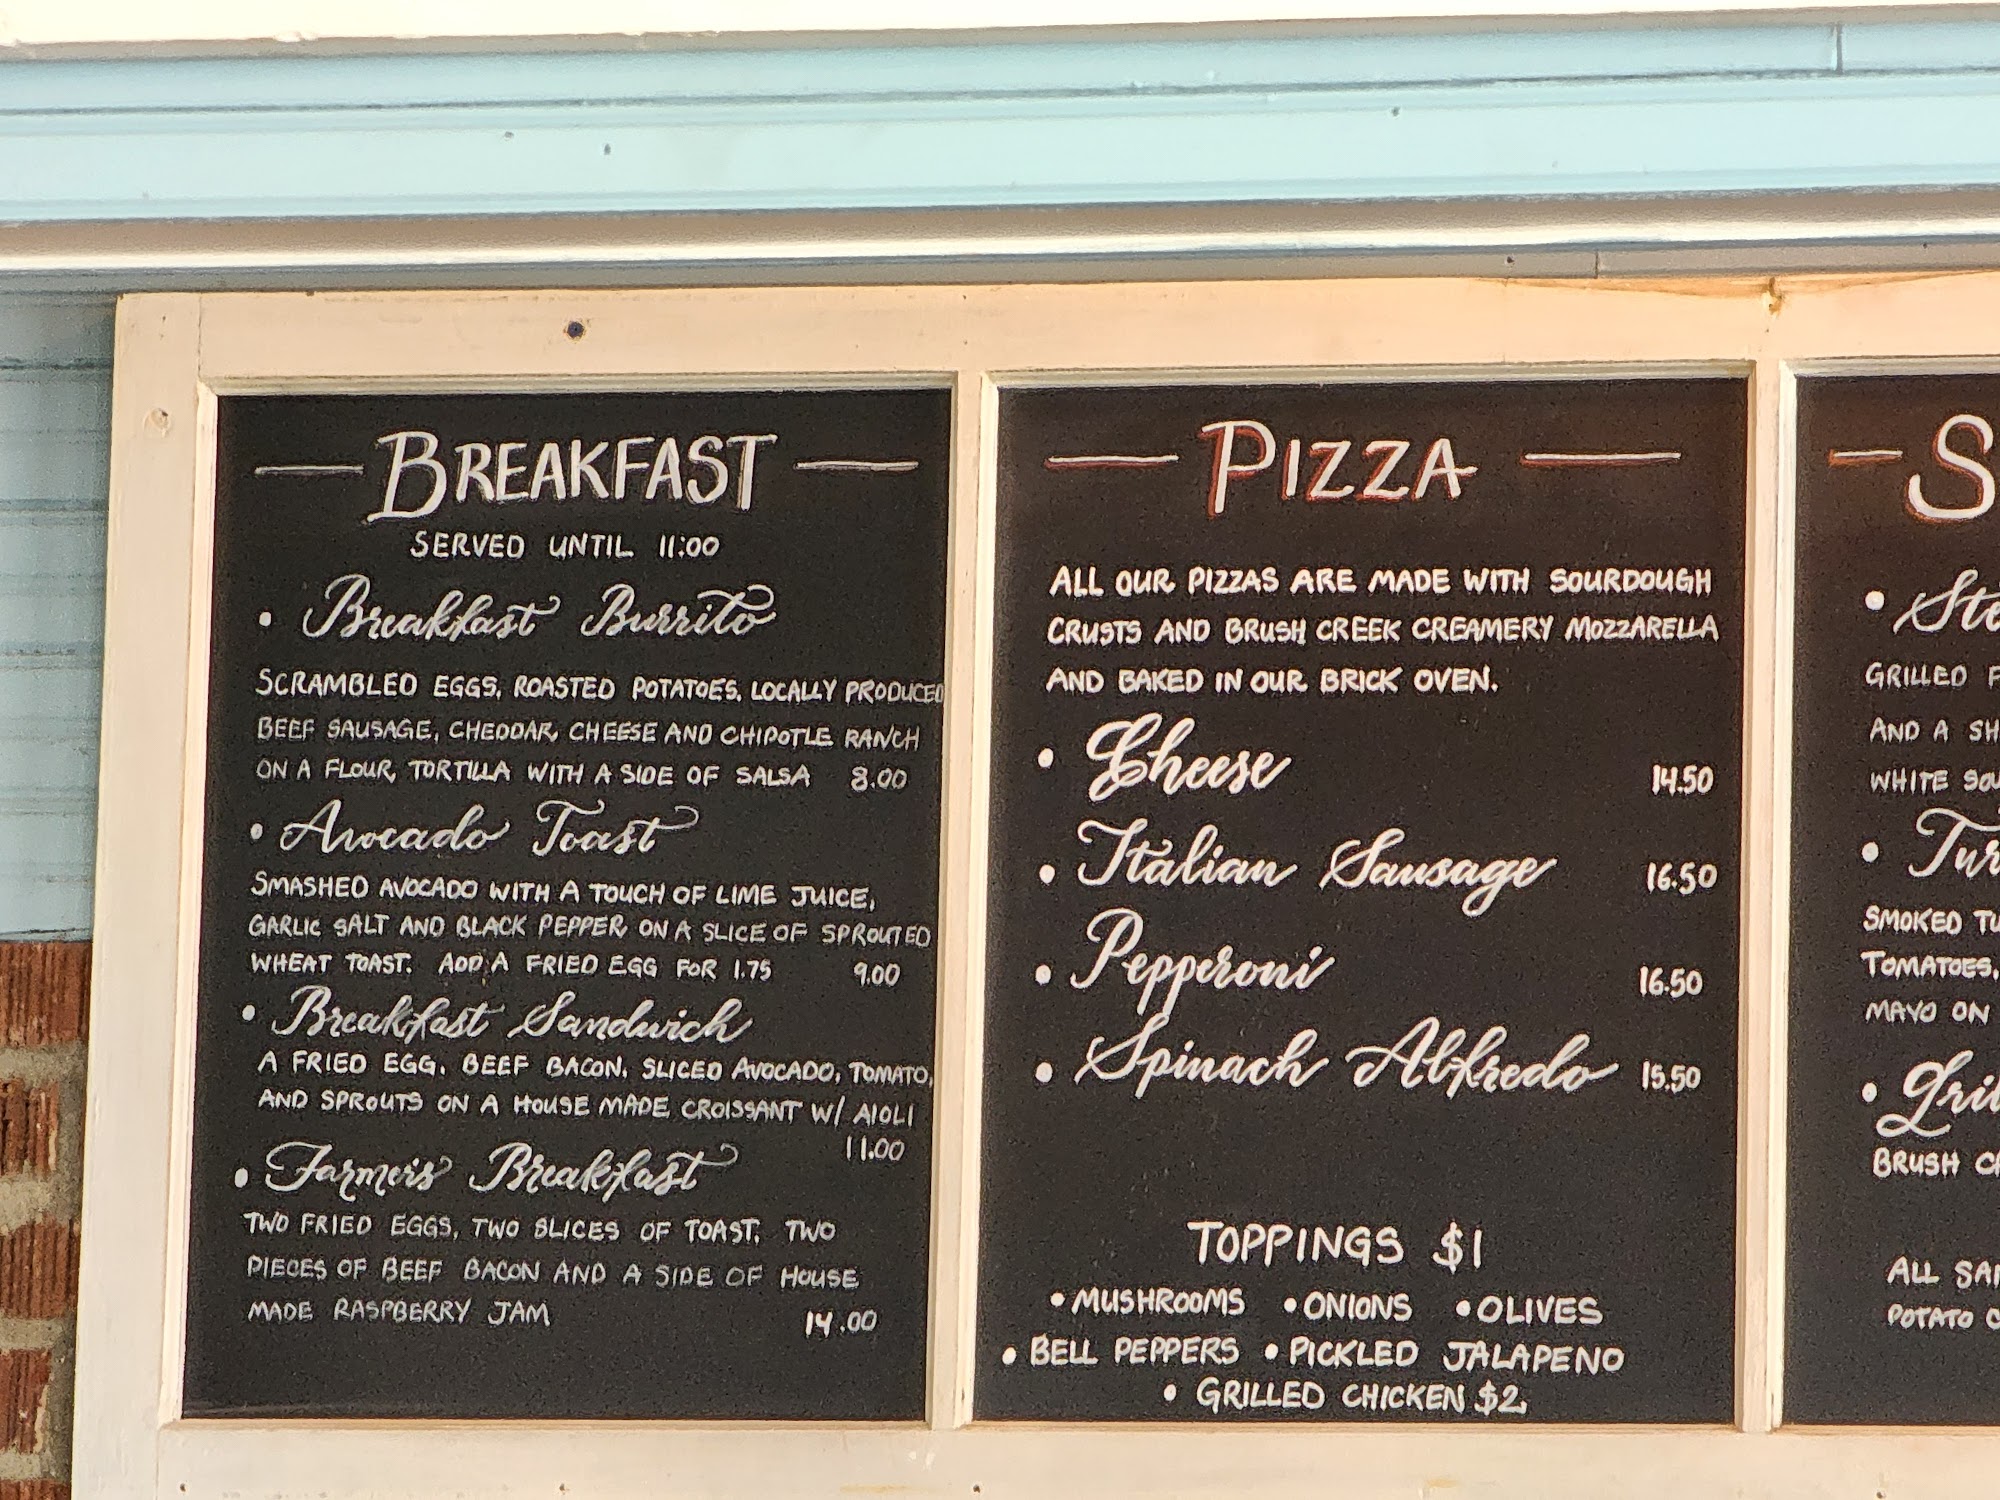 BREAKFAST
SERVED UNTIL 11:00
• Breakfast Burrito
SCRAMBLED EGGS, ROASTED POTATOES, LOCALLY PRODUCED
BEEF SAUSAGE, CHEDDAR, CHEESE AND CHIPOTLE RANCH
ON A FLOUR, TORTILLA WITH A SIDE OF SALSA 8.00
• Avocado Toast
SMASHED AVOCADO WITH A TOUCH OF LIME JUICE,
GARLIC SALT AND BLACK PEPPER, ON A SLICE OF SPROUTED
WHEAT TOAST. ADD A FRIED EGG FOR 1.75 9.00
• Breakfast Sandwich
A FRIED EGG, BEEF BACON, SLICED AVOCADO, TOMATO,
AND SPROUTS ON A HOUSE MADE CROISSANT W/ AIOLI
11.00
• Farmer's Breakfast
TWO FRIED EGGS, TWO SLICES OF TOAST, TWO
PIECES OF BEEF BACON AND A SIDE OF HOUSE
MADE RASPBERRY JAM 14.00
PIZZA
ALL OUR PIZZAS ARE MADE WITH SOURDOUGH
CRUSTS AND BRUSH CREEK CREAMERY MOZZARELLA
AND BAKED IN OUR BRICK OVEN.
• Cheese 14.50
• Italian Sausage 16.50
• Pepperoni 16.50
• Spinach Alfredo 15.50
TOPPINGS $1
• MUSHROOMS • ONIONS • OLIVES
• BELL PEPPERS • PICKLED JALAPENO
• GRILLED CHICKEN $2
S
• Ste
GRILLED
AND A SH
WHITE SOU
• Tur
SMOKED TU
TOMATOES,
MAYO ON
• Gril
BRUSH
ALL SAN
POTATO C